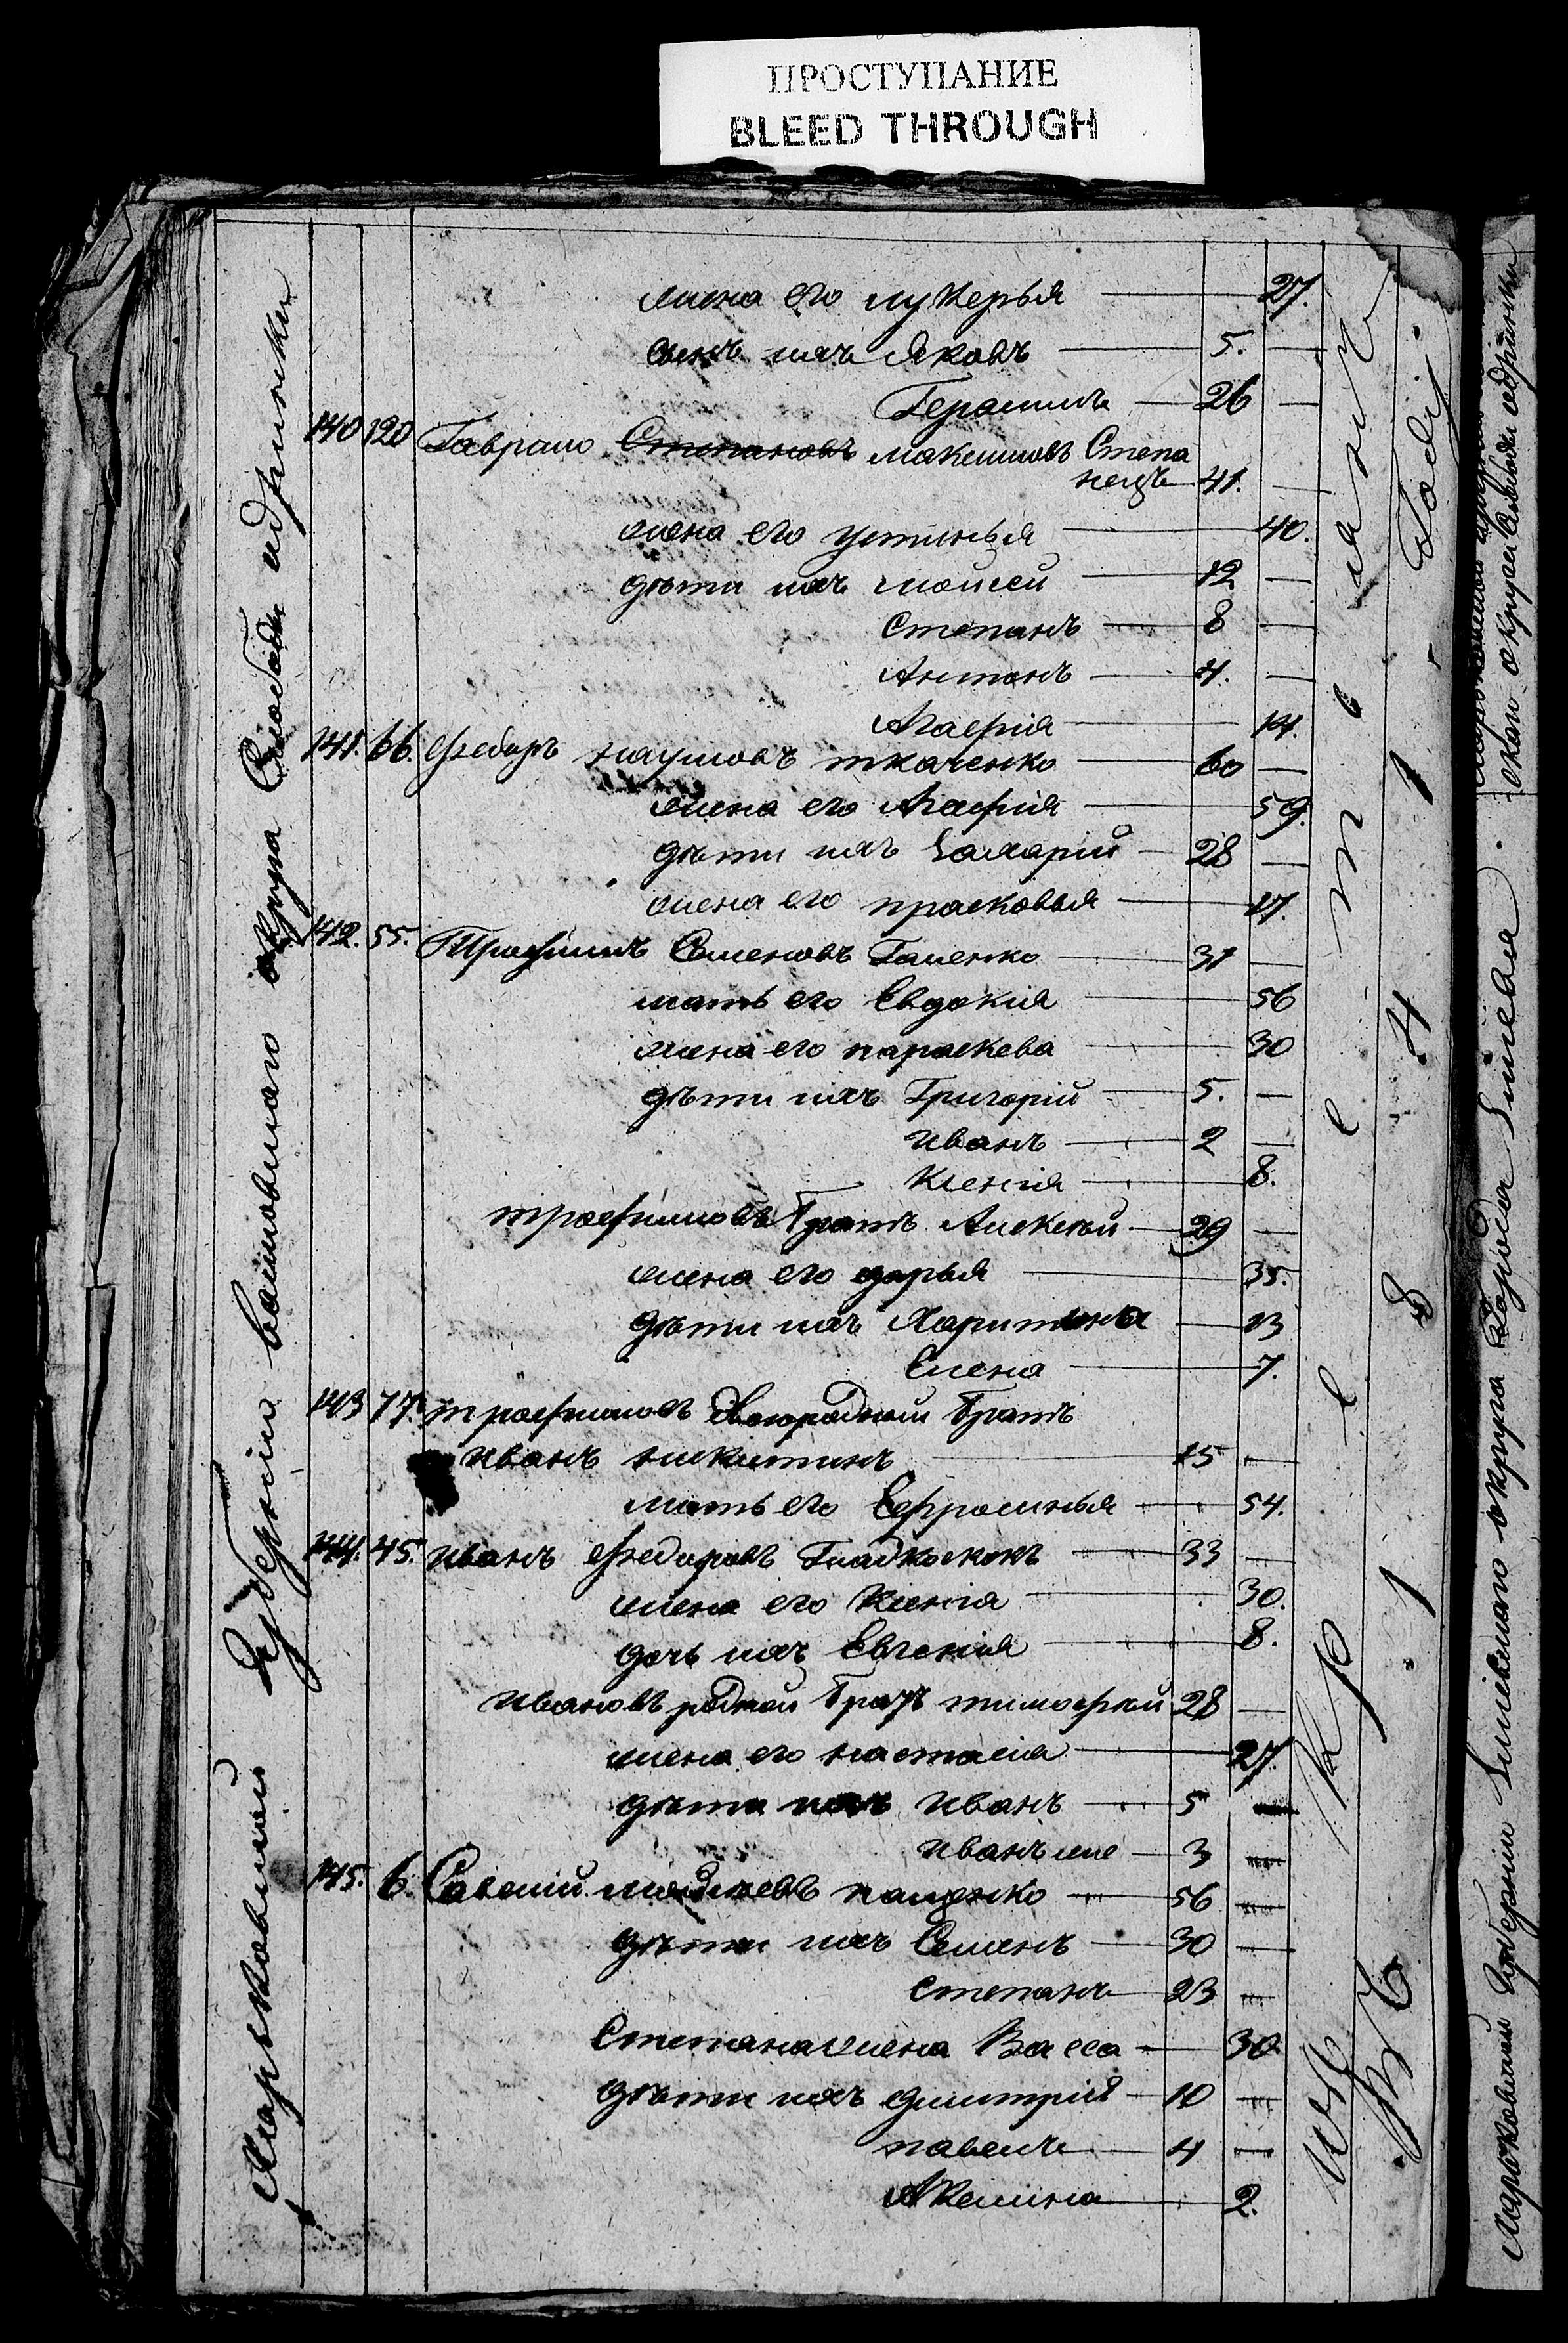 ПРОСТУПАНИЕ
BLEED THROUGH
жена его лукерья — 27.
сынъ ихъ Яковъ — 5. —
Герасимъ — 26 —
140 120 Гаврило Степановъ максимовъ Степа
нецъ 41. —
жена его устинья — 40.
дѣти ихъ моисей — 12 —
Степанъ — 8 —
Антонъ — 4. —
Агафія — 14.
141. 66. Ѳедоръ наумовъ ткаченко — 60 —
жена его Агафія — 59.
дѣти ихъ Захарій — 28 —
жена его прасковья — 27.
142. 55. Трофимъ Семеновъ Гаменко — 31 —
мать его Евдокія — 56
жена его параскева — 30
дѣти ихъ Григорій — 5. —
иванъ — 2 —
Ксенія — 8.
трофимовъ братъ Алексѣй — 29 —
жена его дарья — 35.
дѣти ихъ Харитина — 13
Елена — 7.
143 77. трофимовъ двоюродной братъ
иванъ никитинъ — 15 —
мать его Ефросинья — 54.
144. 45. иванъ Ѳедоровъ Гладкоскокъ — 33 —
жена его Ксенія — 30.
дочь ихъ Евгенія — 8.
ивановъ родной братъ тимофей 28 —
жена его настасія — 27.
дѣти ихъ иванъ — 5 —
иванъ же — 3 —
145. 6. Савелій пащенко — 56 —
дѣти ихъ Семенъ — 30 —
Степанъ — 23 —
Степана жена Васса — 30
дѣти ихъ дмитрій — 10 —
павелъ — 4 —
Акелина — 2.
Харьковской Губерніи округа Слободы
крестьяне
1 4 8 1 Году
Харьковской Губерніи Зміевскаго округа Города Зміева
округи Слободы